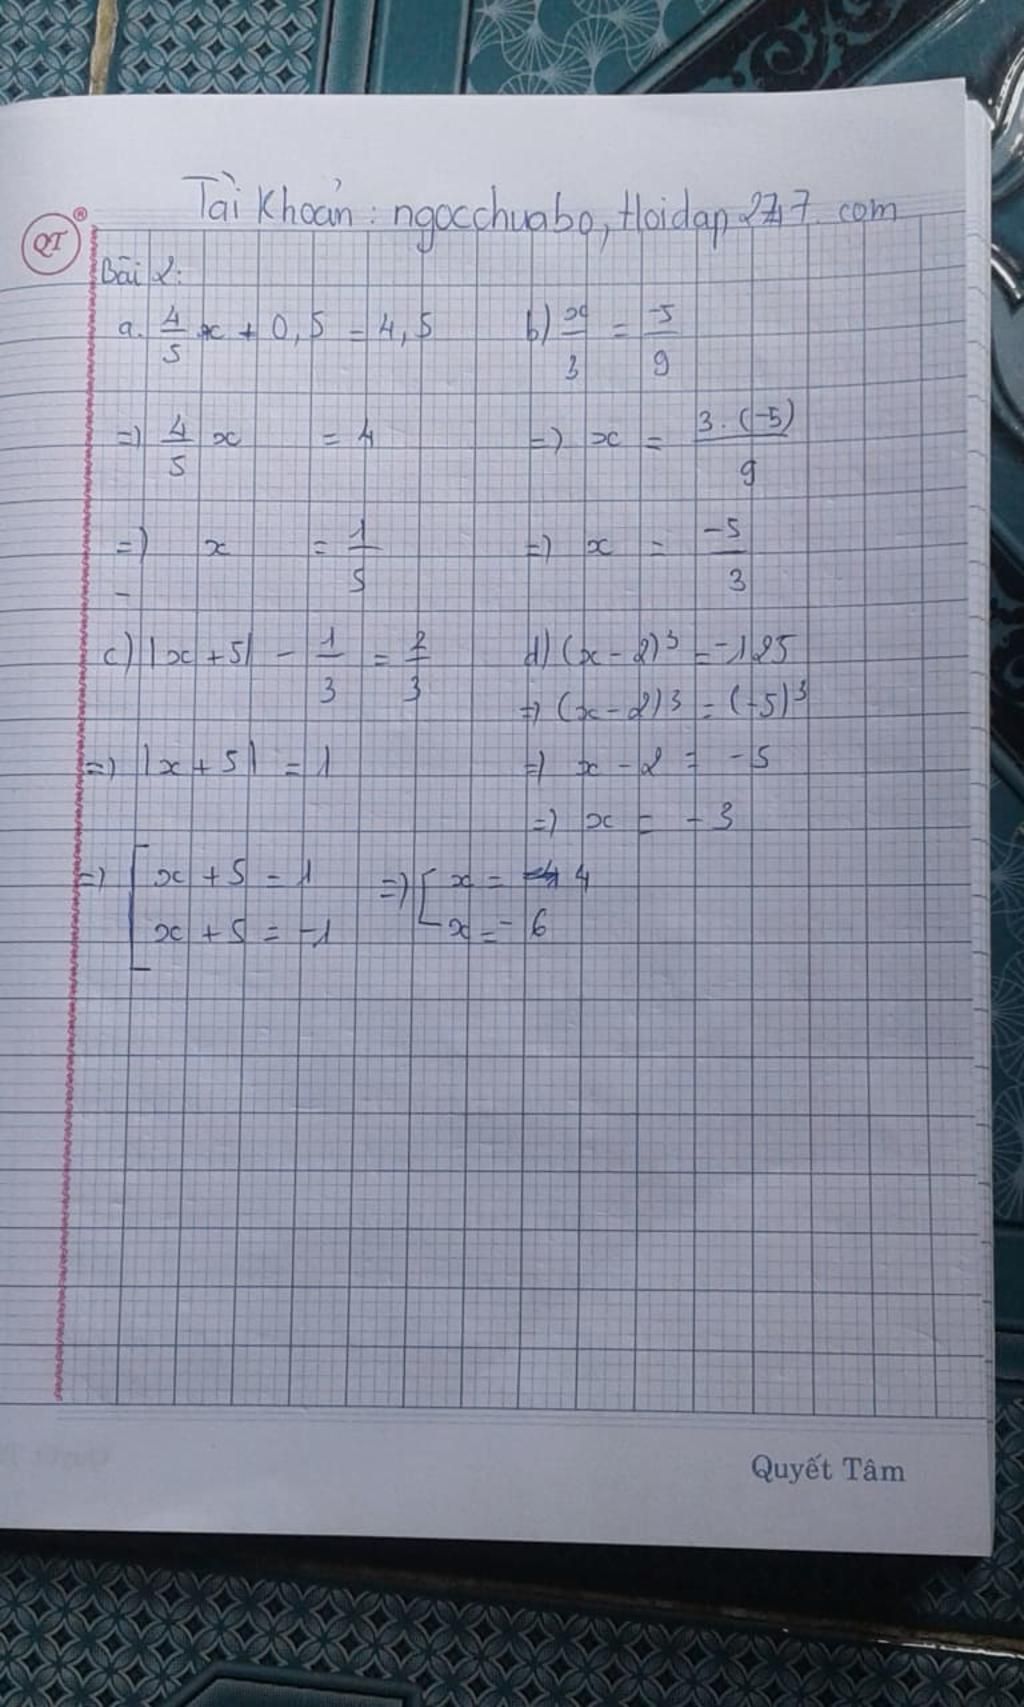 Tài Khoản: ngocchuabo, Hoidap 247. com
QT
Bài 2:
a. 4/5 x + 0,5 = 4,5
=) 4/5 x = 4
=) x = 1/5
b) x/3 = -5/9
=) x = 3.(-5)/9
=) x = -5/3
c) |x+5| - 1/3 = 2/3
=) |x+5| = 1
=) [ x+5 = 1 =) [ x = 4
x+5 = -1 x = -6
d) (x-2)³ = -125
=) (x-2)³ = (-5)³
=) x-2 = -5
=) x = -3
Quyết Tâm